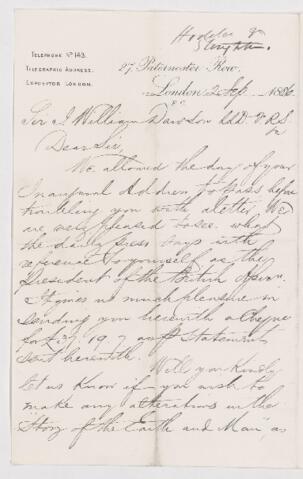 Hodder &
Stoughton.
TELEPHONE No 143.
TELEGRAPHIC ADDRESS.
EXPOSITOR LONDON.
27, Paternoster Row.
London 2 Sep 1886
Sir J William Dawson LLD. F.R.S.
Dear Sir,
We allowed the day of your
Inaugural Address to pass before
troubling you with a letter. We
are very pleased to see what
the daily press says with
reference to yourself as the
President of the British Assn.
It gives us much pleasure in
sending you herewith a cheque
for £37. 19. 7 as Statement
sent herewith.
Will you kindly
let us know if you wish to
make any alterations in the
"Story of the Earth and Man", as